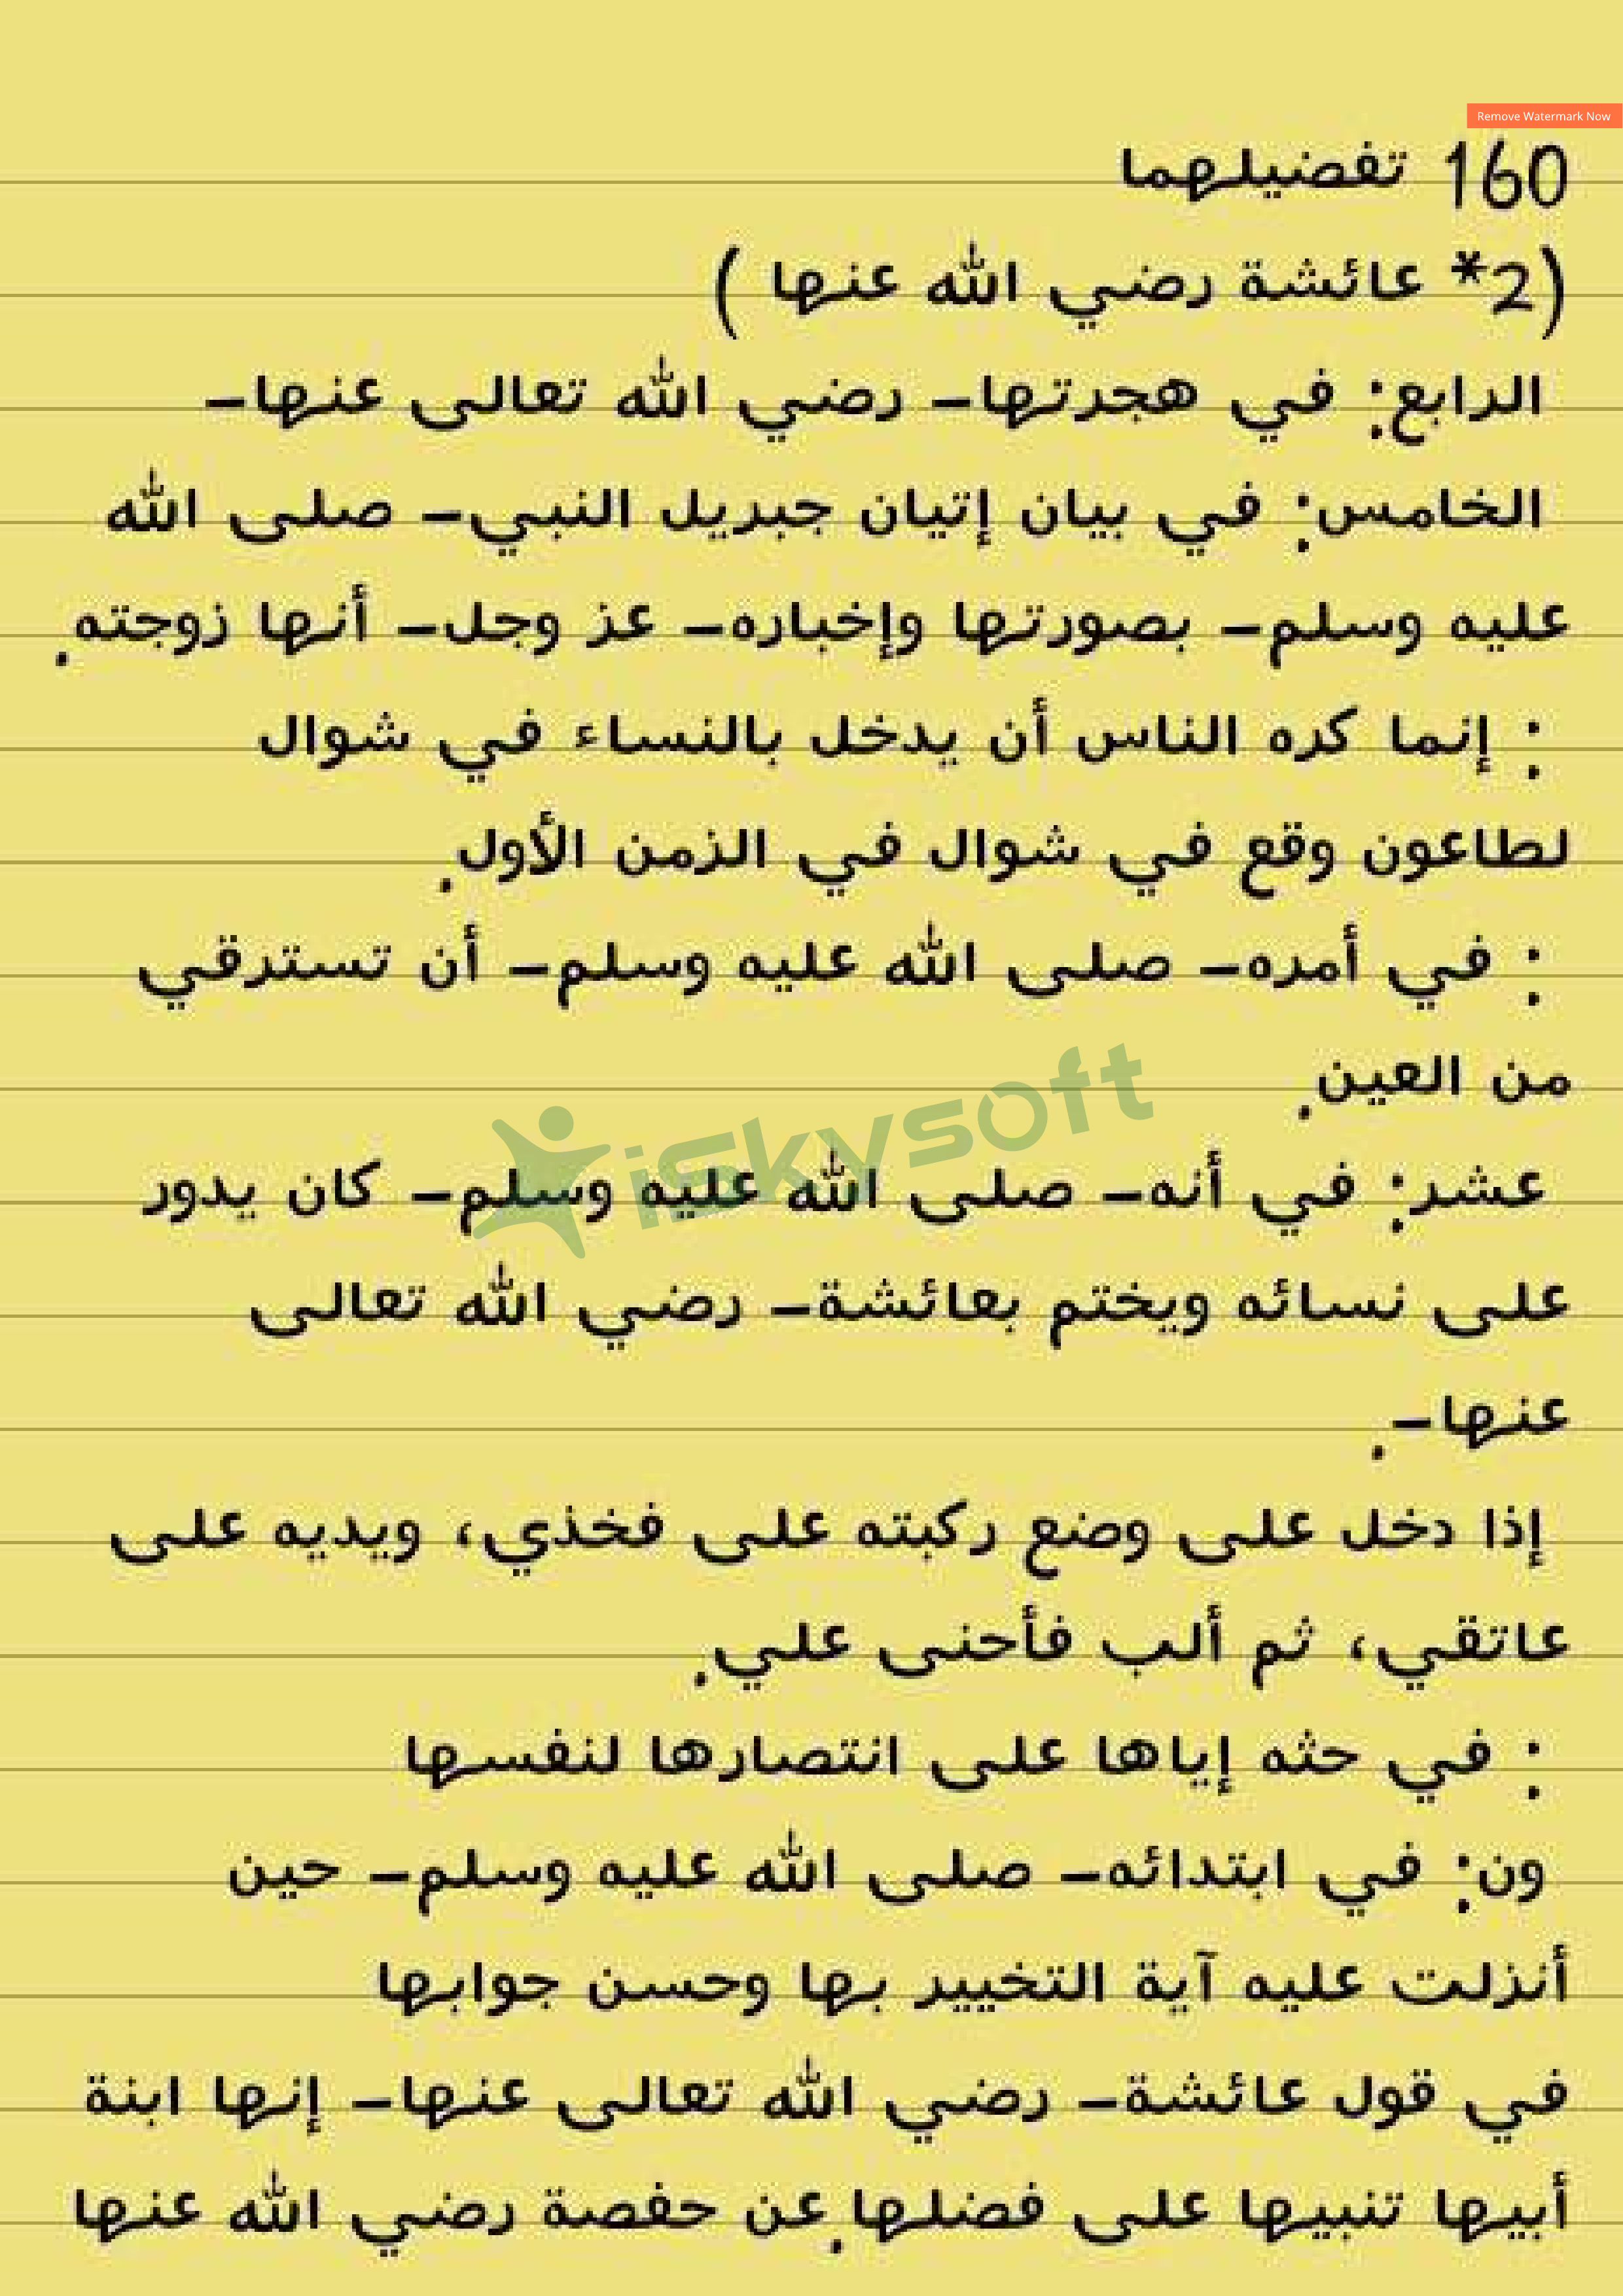 Remove Watermark Now
160 تفضيلهما
(2* عائشة رضي الله عنها )
الرابع: في هجرتها- رضي الله تعالى عنها-
الخامس: في بيان إتيان جبريل النبي- صلى الله
عليه وسلم- بصورتها وإخباره- عز وجل- أنها زوجته.
: إنما كره الناس أن يدخل بالنساء في شوال
لطاعون وقع في شوال في الزمن الأول.
: في أمره- صلى الله عليه وسلم- أن تسترقي
من العين.
iskysoft
عشر: في أنه- صلى الله عليه وسلم- كان يدور
على نسائه ويختم بعائشة- رضي الله تعالى
عنها-.
إذا دخل على وضع ركبته على فخذي، ويديه على
عاتقي، ثم ألب فأحنى علي.
: في حثه إياها على انتصارها لنفسها
ون: في ابتدائه- صلى الله عليه وسلم- حين
أنزلت عليه آية التخيير بها وحسن جوابها
في قول عائشة- رضي الله تعالى عنها- إنها ابنة
أبيها تنبيها على فضلها.عن حفصة رضي الله عنها